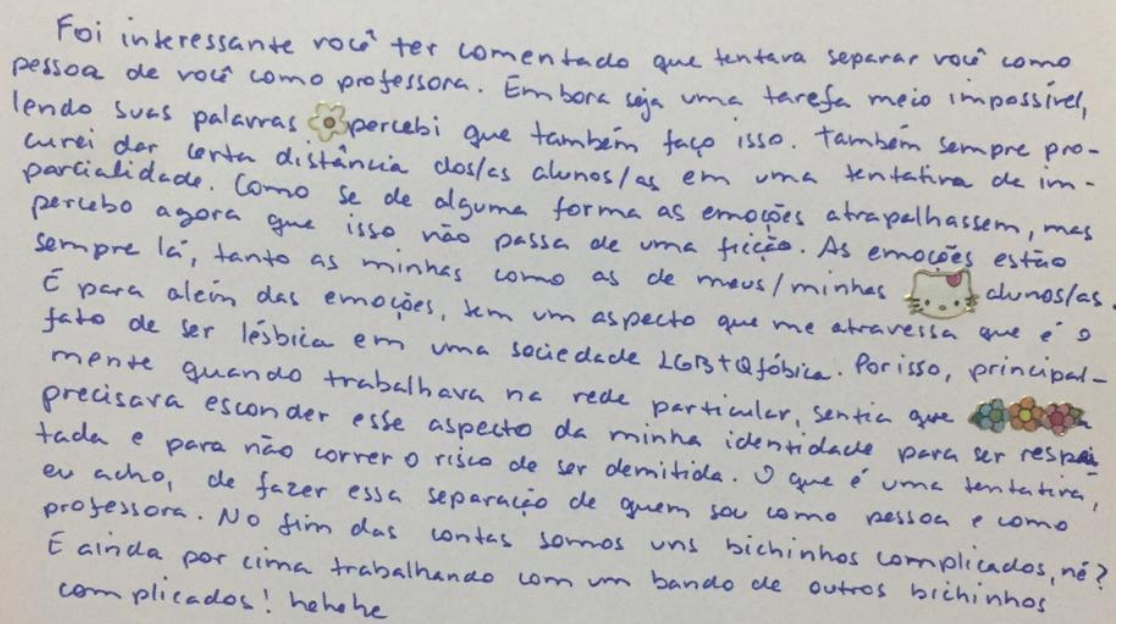 Foi interessante você ter comentado que tentava separar você como
pessoa de você como professora. Embora seja uma tarefa meio impossível,
lendo suas palavras percebi que também faço isso. Também sempre pro-
curei dar certa distância dos/as alunos/as em uma tentativa de im-
parcialidade. Como se de alguma forma as emoções atrapalhassem, mas
percebo agora que isso não passa de uma ficção. As emoções estão
sempre lá, tanto as minhas como as de meus/minhas alunos/as.
E para além das emoções, tem um aspecto que me atravessa que é o
fato de ser lésbica em uma sociedade LGBTQfóbica. Por isso, principal-
mente quando trabalhava na rede particular, sentia que
precisava esconder esse aspecto da minha identidade para ser respei
tada e para não correr o risco de ser demitida. O que é uma tentativa,
eu acho, de fazer essa separação de quem sou como pessoa e como
professora. No fim das contas somos uns bichinhos complicados, né?
E ainda por cima trabalhando com um bando de outros bichinhos
complicados! hehehe